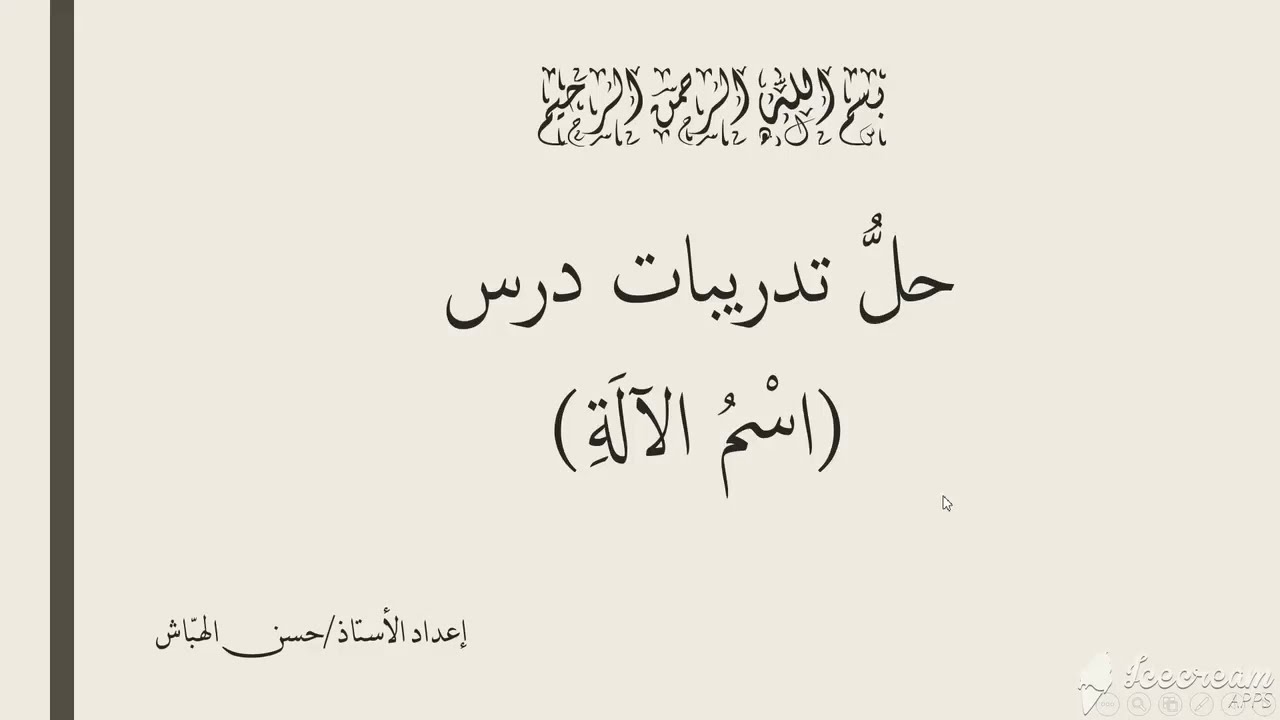 بسم الله الرحمن الرحيم
حلُّ تدريبات درس
(اسْمُ الآلَةِ)
إعداد الأستاذ/حسن الهبّاش
Icecream
APPS